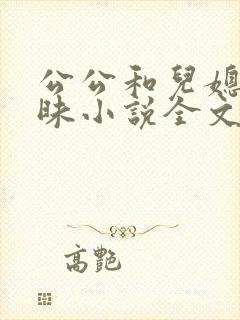 公公和兒媳
昧小說全文
高艷